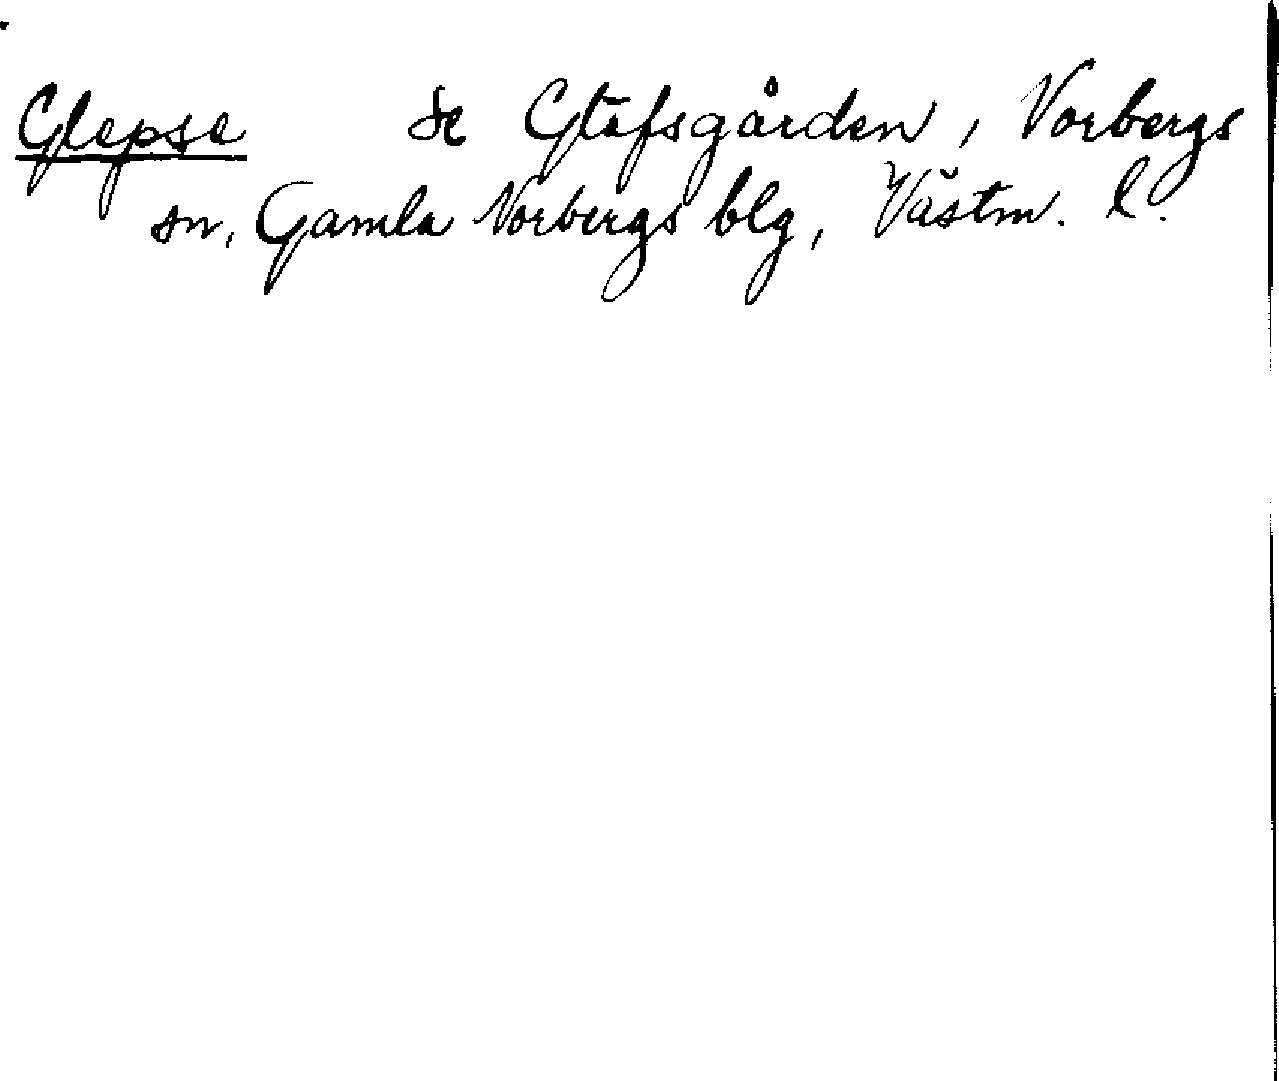 Glepse Se Gläfsgården, Norbergs
sn, Gamla Norbergs blg, Västm. l.